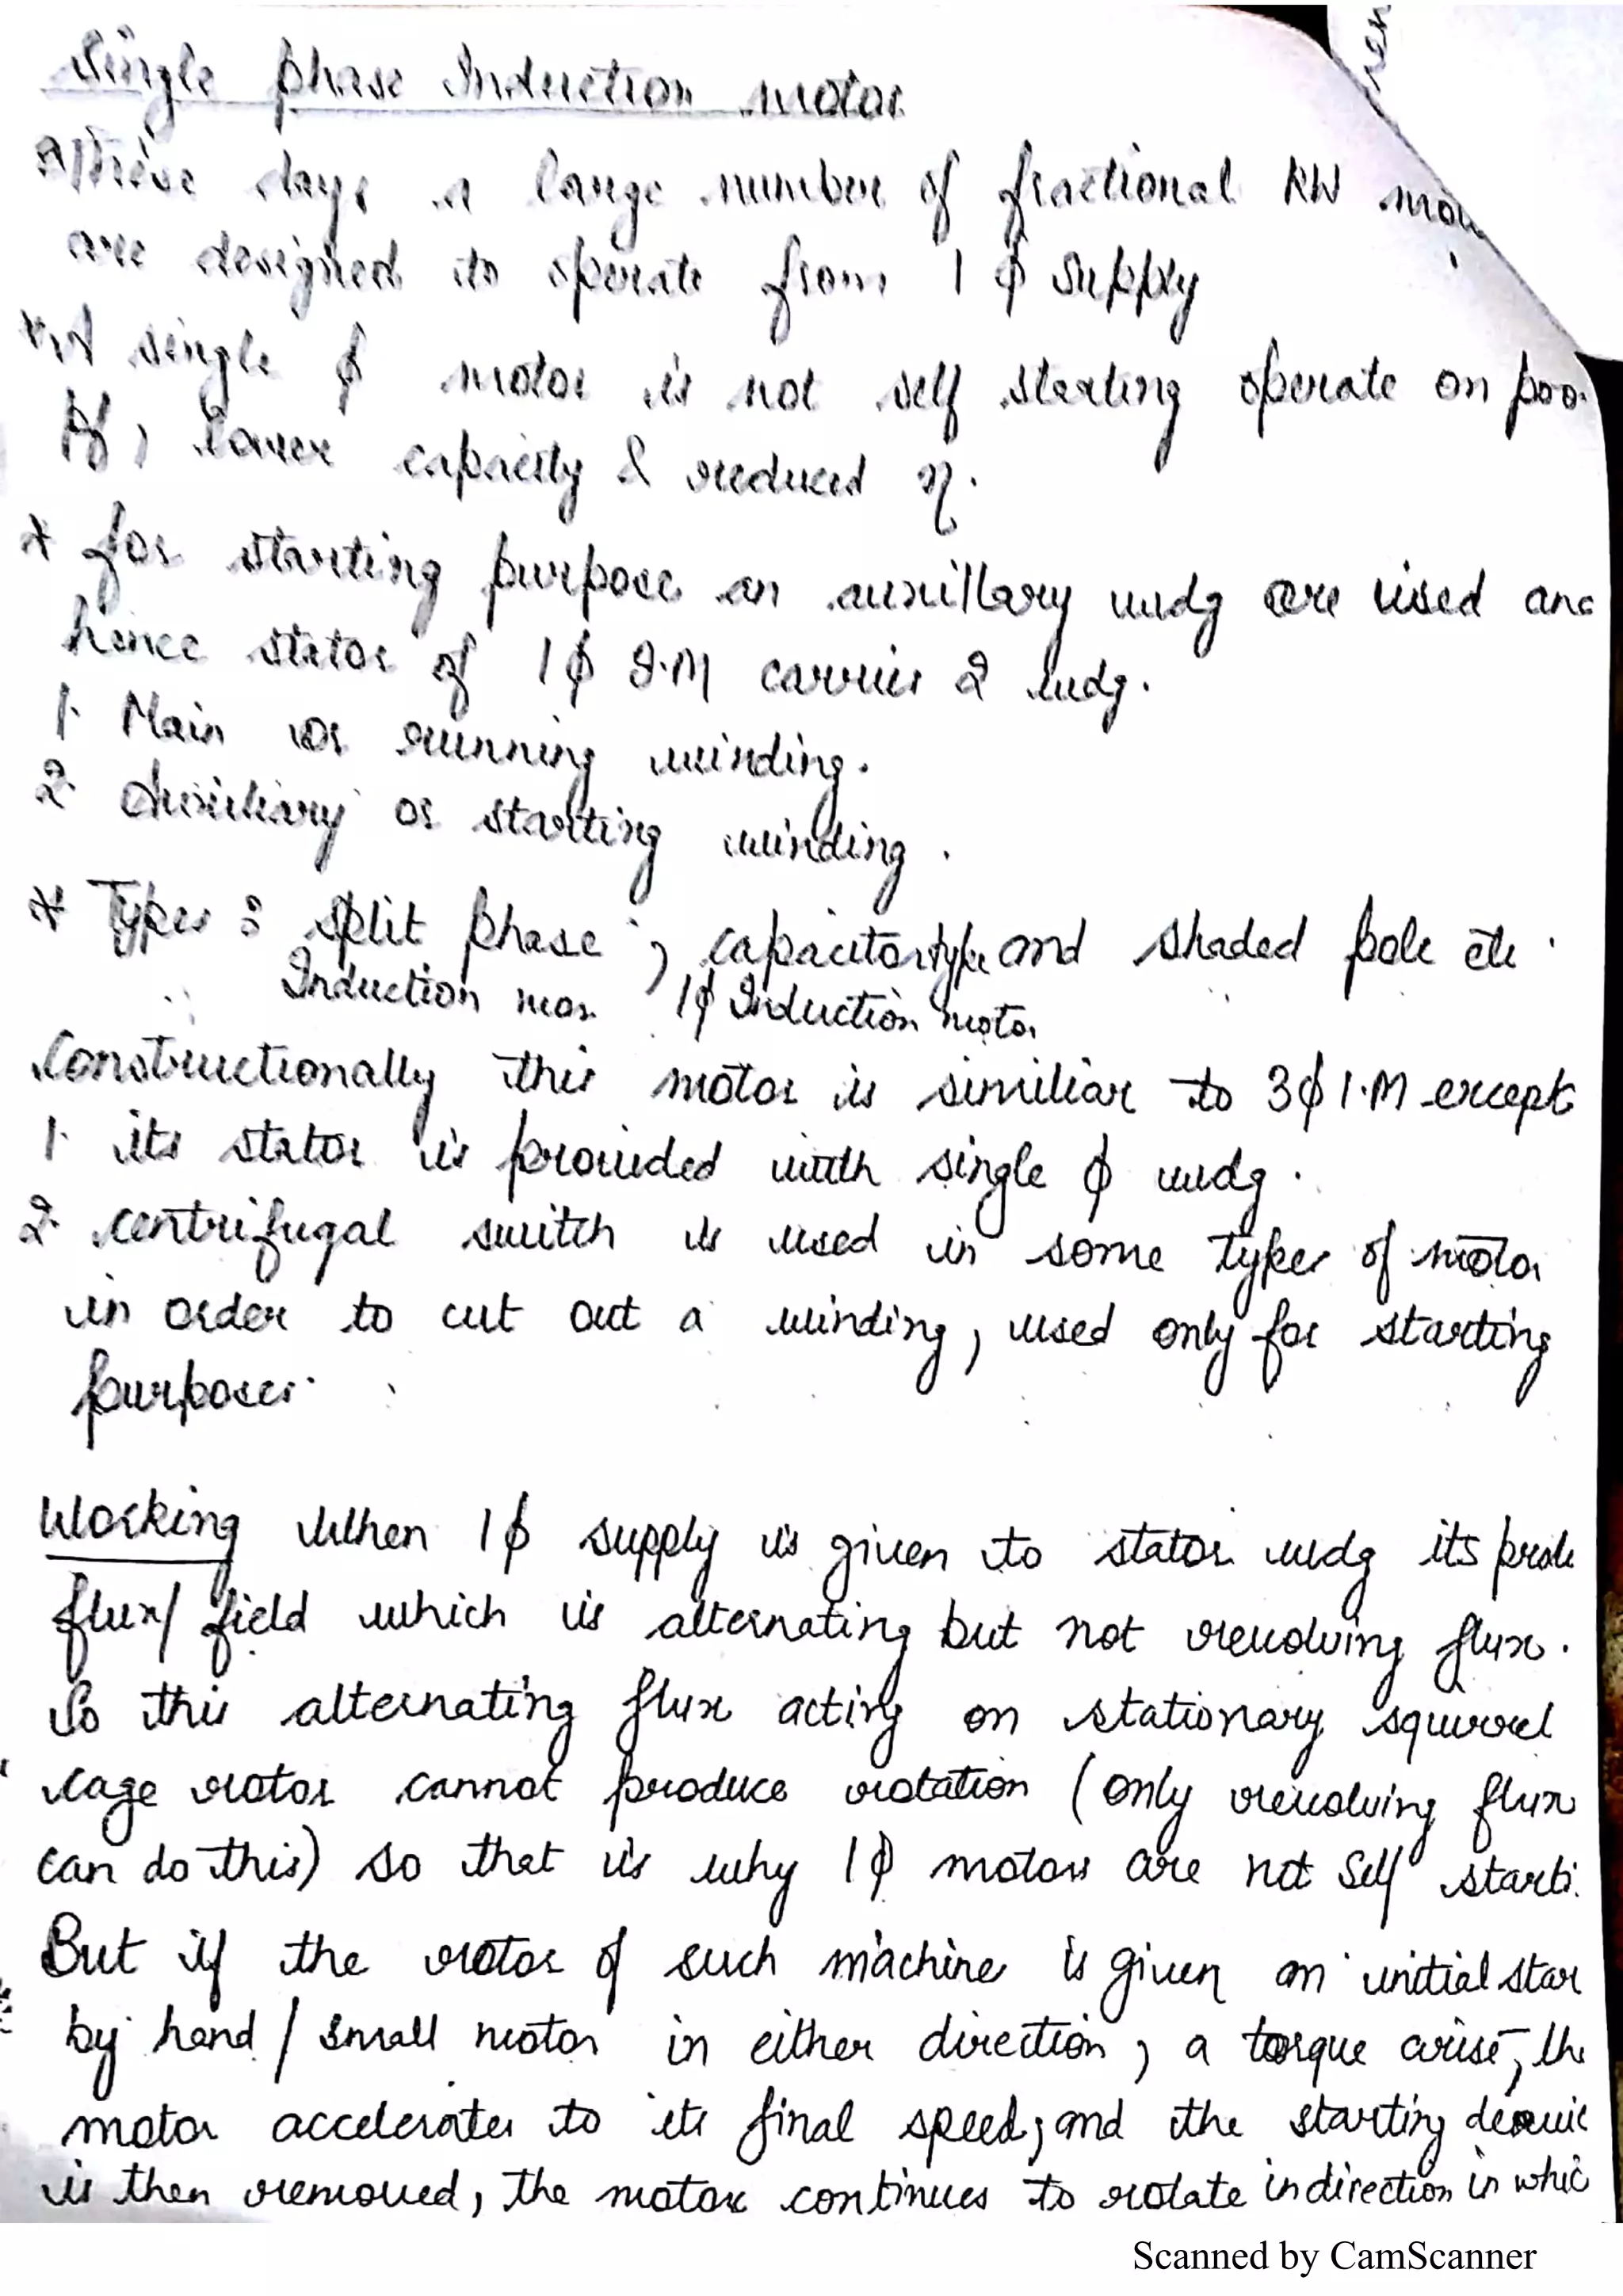 Single phase Induction motor
* These days a large number of fractional KW
are designed to operate from 1 ϕ supply
* A single ϕ motor is not self starting operate on
Pf, lower capacity & reduced η.
* for starting purpose an auxillary wdg are used
hence stator of 1ϕ I.M carries 2 wdg.
1. Main or running winding.
2. Auxiliary or starting winding.
* Types : split phase , capacitor type and shaded pole etc.
Induction 1ϕ Induction motor
Constructionally this motor is similiar to 3ϕ I.M except
1. its stator is provided with single ϕ wdg.
2. centrifugal switch is used in some types of motor
in order to cut out a winding, used only for starting
purposes.
Working When 1ϕ supply is given to stator wdg its
flux/field which is alternating but not revolving flux.
So this alternating flux acting on stationary squirrel
cage rotor cannot produce rotation (only revolving flux
can do this) so that is why 1ϕ motors are not self
But if the rotor of such machine is given an initial
by hand/small motor in either direction, a torque arise,
motor accelerates to its final speed; and the starting
is then removed, the motor continues to rotate in direction in
Scanned by CamScanner